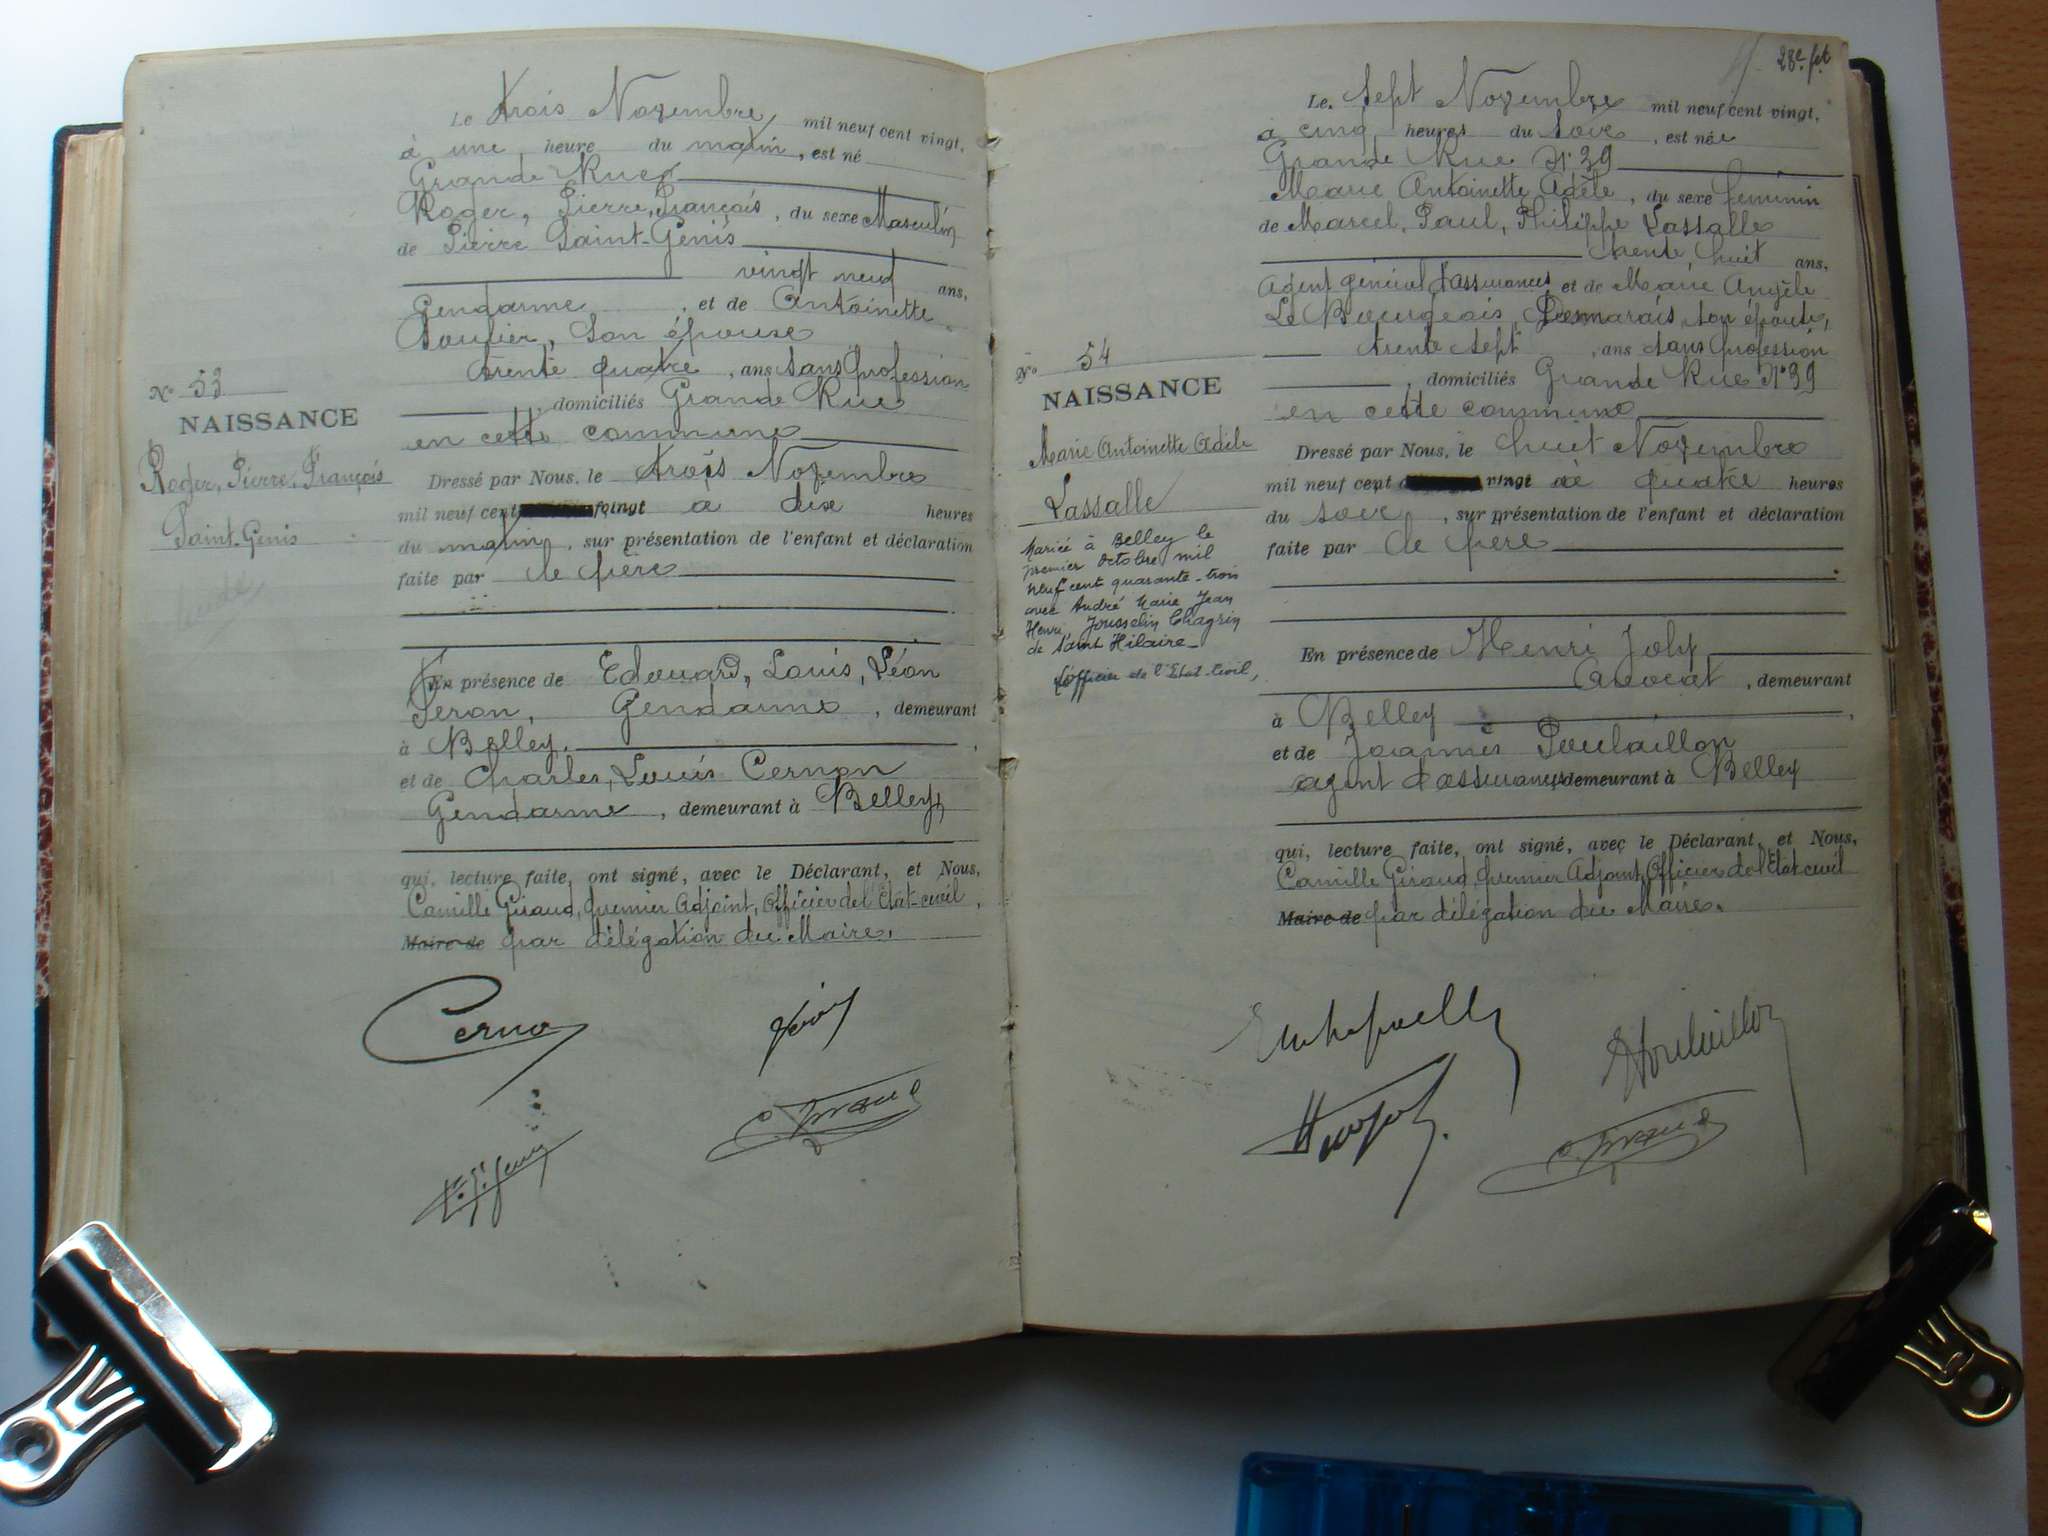 Le trois Novembre mil neuf cent vingt,
à une heure du matin, est né
Grande Rue
Roger, Pierre, François, du sexe Masculin
de Pierre Saint-Genis
vingt neuf ans,
Gendarme, et de Antoinette
Soulier, son épouse
trente quatre, ans sans profession
domiciliés Grande Rue
en cette commune
N° 53
NAISSANCE
Roger, Pierre, François
Saint-Genis
Dressé par Nous, le trois Novembre
mil neuf cent vingt à deux heures
du matin, sur présentation de l'enfant et déclaration
faite par le père
En présence de Edouard, Louis, Léon
Peron, Gendarme, demeurant
à Belley,
et de Charles, Louis Cernon
Gendarme, demeurant à Belley,
qui, lecture faite, ont signé, avec le Déclarant, et Nous,
Camille Giraud, premier Adjoint, Officier de l'Etat-civil,
Maire de par délégation du Maire.
C. Giraud
28e fet
Le sept Novembre mil neuf cent vingt,
à cinq heures du soir, est née
Grande Rue N° 39
Marie Antoinette Adèle, du sexe féminin
de Marcel, Paul, Philippe Lassalle
trente huit ans,
agent général d'assurances et de Marie Angèle
Le Bourgeois Desmarais, son épouse,
trente sept, ans sans profession
domiciliés Grande Rue N° 39
en cette commune
N° 54
NAISSANCE
Marie Antoinette Adèle
Lassalle
Mariée à Belley le
premier Octobre mil
neuf cent quarante-trois
avec André Marie Jean
Henri Jousselin Chagrin
de Saint Hilaire
L'officier de l'Etat-Civil,
Dressé par Nous, le huit Novembre
mil neuf cent vingt à quatre heures
du soir, sur présentation de l'enfant et déclaration
faite par le père
En présence de Henri Joly
Avocat, demeurant
à Belley,
et de Joannès Poulaillon
agent d'assurances demeurant à Belley
qui, lecture faite, ont signé, avec le Déclarant, et Nous,
Camille Giraud, premier Adjoint, Officier de l'Etat-civil
Maire de par délégation du Maire.
C. Giraud